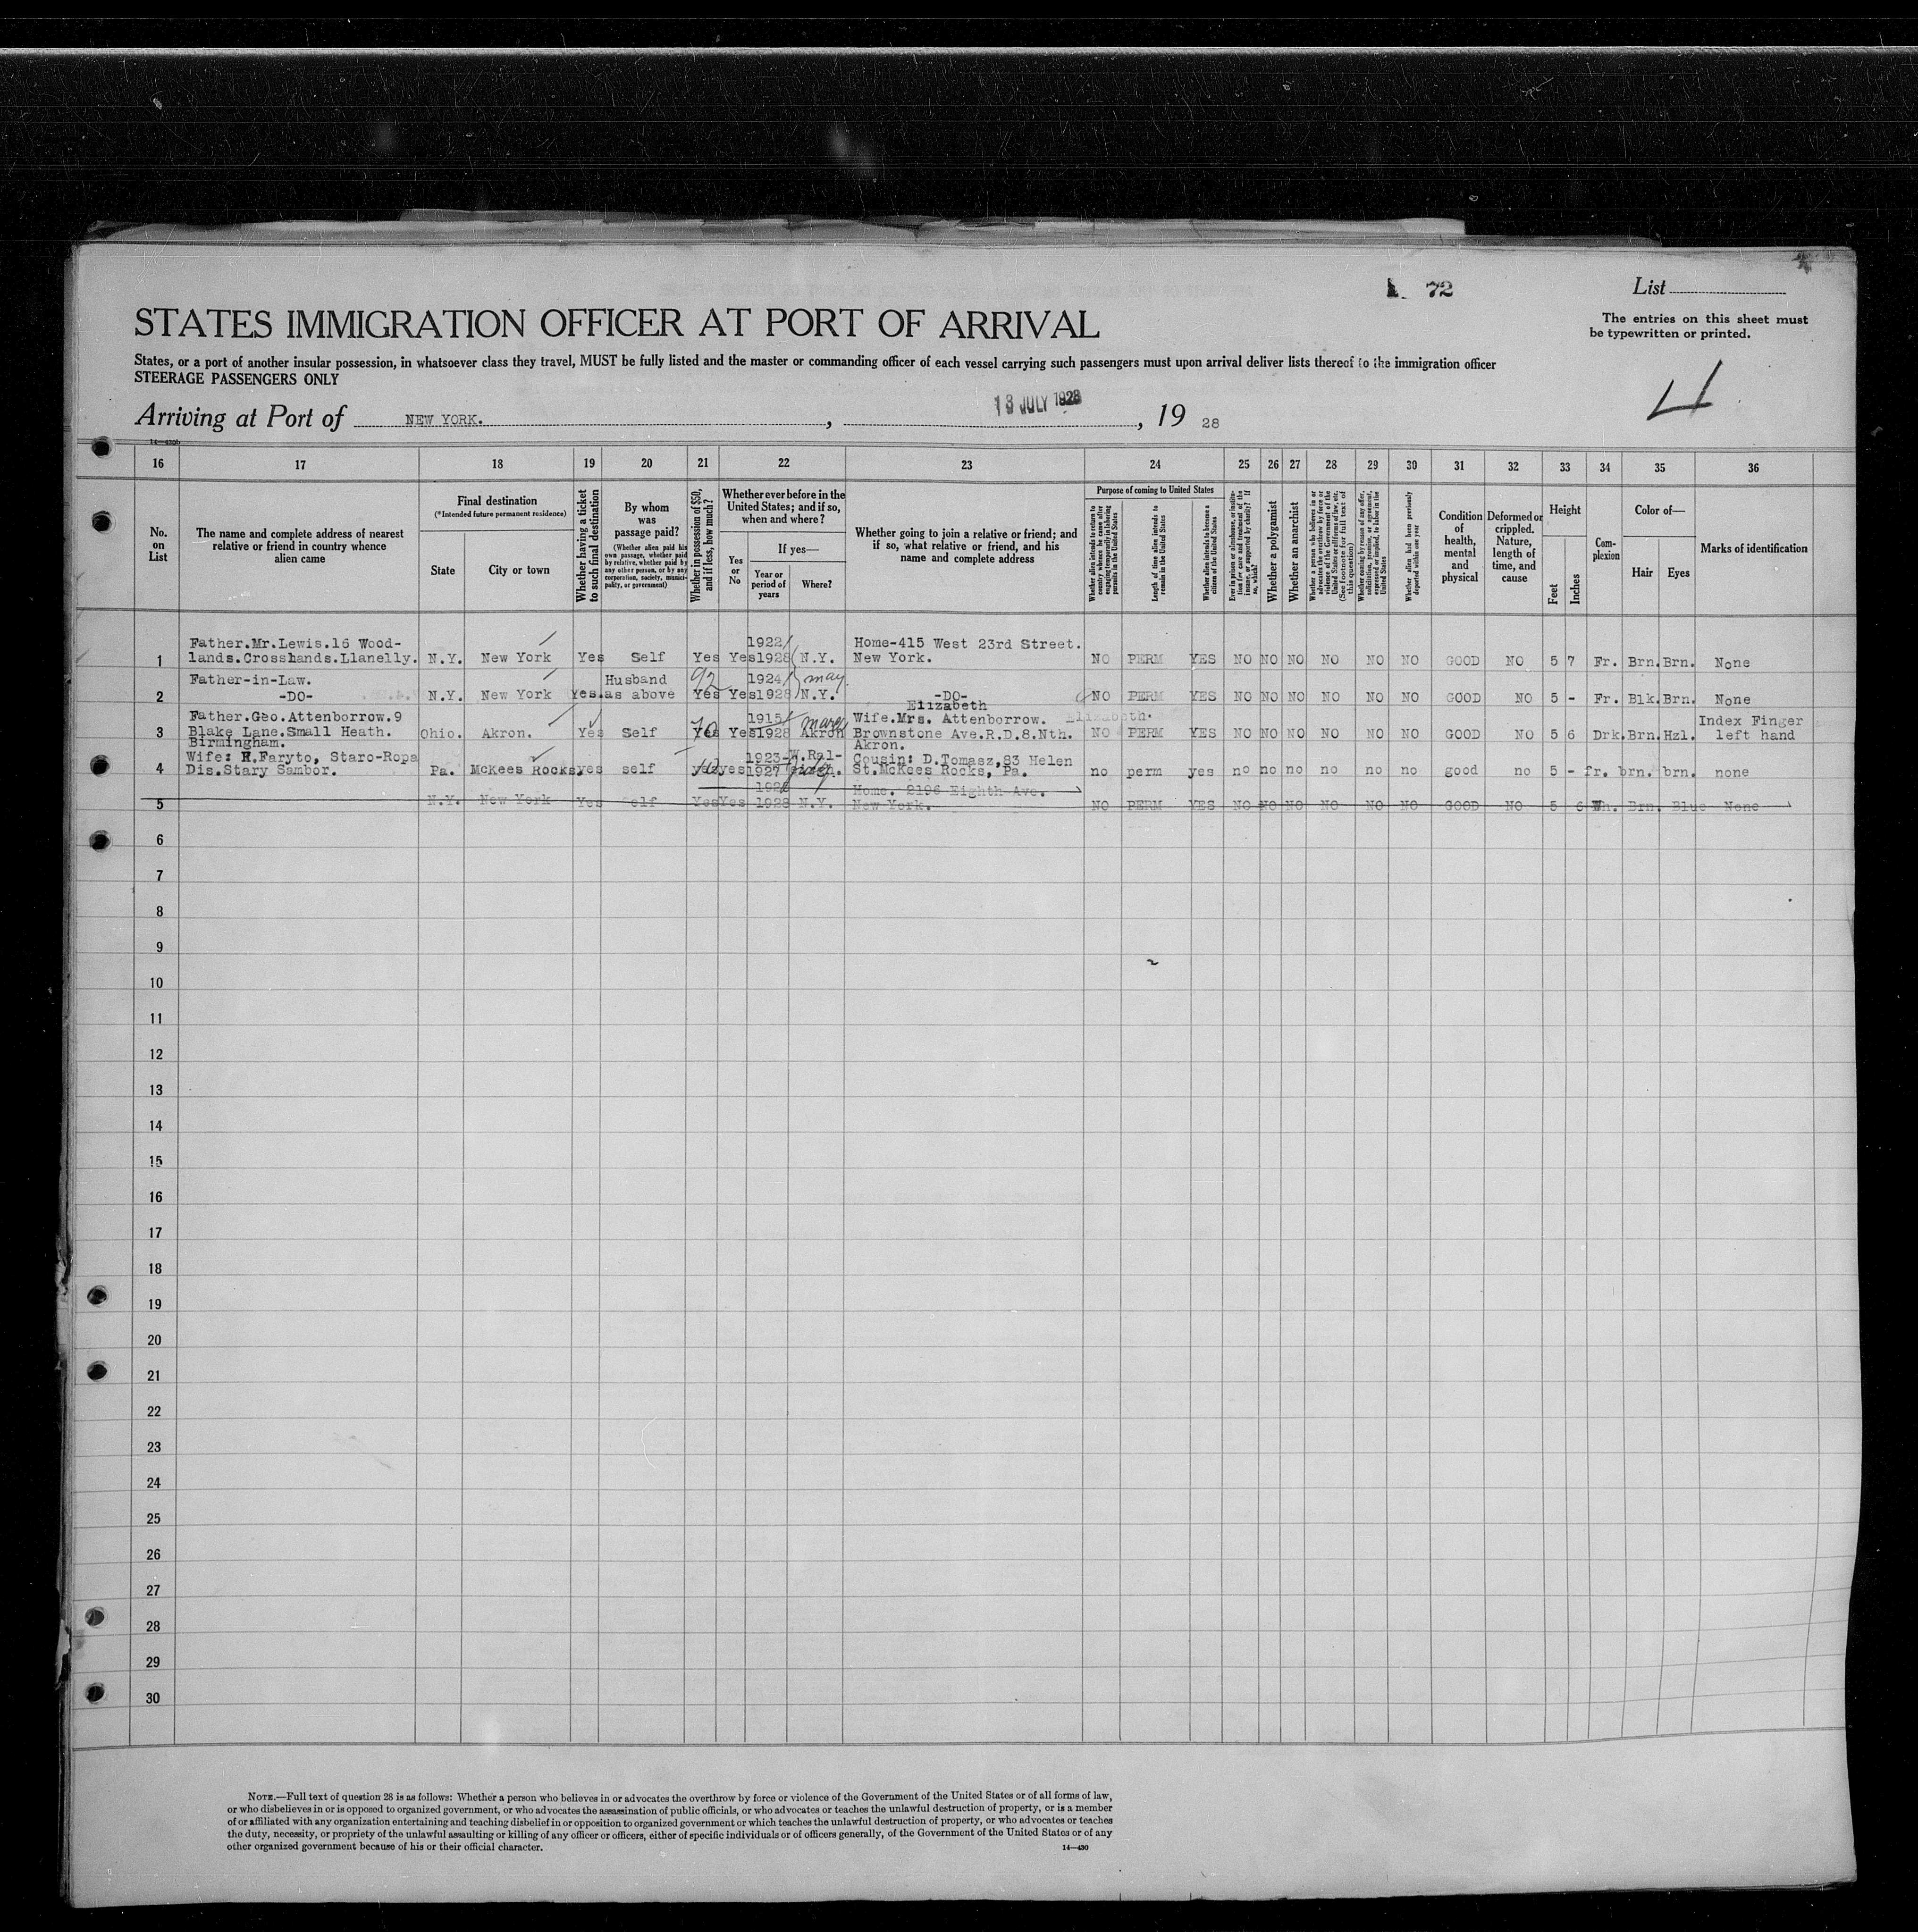 72
List
The entries on this sheet must
be typewritten or printed.
STATES IMMIGRATION OFFICER AT PORT OF ARRIVAL
States, or a port of another insular possession, in whatsoever class they travel, MUST be fully listed and the master or commanding officer of each vessel carrying such passengers must upon arrival deliver lists thereof to the immigration officer
STEERAGE PASSENGERS ONLY
Arriving at Port of NEW YORK. , 13 JULY 1928 , 19 28
14—430b
16 17 18 19 20 21 22 23 24 25 26 27 28 29 30 31 32 33 34 35 36
No. on List
The name and complete address of nearest relative or friend in country whence alien came
Final destination
(*Intended future permanent residence)
State
City or town
Whether having a ticket to such final destination
By whom was passage paid?
(Whether alien paid his own passage, whether paid by relative, whether paid by any other person, or by any corporation, society, municipality, or government)
Whether in possession of $50, and if less, how much?
Whether ever before in the United States; and if so, when and where?
Yes or No
If yes—
Year or period of years
Where?
Whether going to join a relative or friend; and if so, what relative or friend, and his name and complete address
Purpose of coming to United States
Whether alien intends to return to country whence he came after engaging temporarily in laboring pursuits in the United States
Length of time alien intends to remain in the United States
Whether alien intends to become a citizen of the United States
Ever in prison or almshouse, or institution for care and treatment of the insane, or supported by charity? If so, which?
Whether a polygamist
Whether an anarchist
Whether a person who believes in or advocates the overthrow by force or violence of the Government of the United States or all forms of law, etc. (See footnote for full text of this question)
Whether coming by reason of any offer, solicitation, promise, or agreement, expressed or implied, to labor in the United States
Whether alien had been previously deported within one year
Condition of health, mental and physical
Deformed or crippled. Nature, length of time, and cause
Height
Feet
Inches
Complexion
Color of—
Hair
Eyes
Marks of identification
Father.Mr.Lewis.16 Wood- 1922 Home-415 West 23rd Street.
1 lands.Crosshands.Llanelly. N.Y. New York Yes Self Yes Yes 1928 N.Y. New York. NO PERM YES NO NO NO NO NO NO GOOD NO 5 7 Fr. Brn. Brn. None
Father-in-Law. Husband 92 1924 may.
2 -DO- N.Y. New York Yes. as above Yes Yes 1928 N.Y. -DO- NO PERM YES NO NO NO NO NO NO GOOD NO 5 - Fr. Blk. Brn. None
Elizabeth
Father.Geo.Attenborrow.9 1915 Wife.Mrs. Attenborrow. Elizabeth. Index Finger
3 Blake Lane.Small Heath. Ohio. Akron. Yes Self Yes 70 Yes 1928 Akron Brownstone Ave.R.D.8.Nth. NO PERM YES NO NO NO NO NO NO GOOD NO 5 6 Drk. Brn. Hzl. left hand
Birmingham. Akron.
Wife: H.Faryto, Staro-Ropa 1923- W.Ral- Cousin: D.Tomasz,83 Helen
4 Dis.Stary Sambor. Pa. McKees Rocks. yes self yes yes 1927 St.McKees Rocks, Pa. no perm yes no no no no no no good no 5 - fr. brn. brn. none
Home. 2196 Eighth Ave.
5 N.Y. New York Yes Self Yes Yes 1928 N.Y. New York. NO PERM YES NO NO NO NO NO NO GOOD NO 5 6 Wh. Brn. Blue None
6
7
8
9
10
11
12
13
14
15
16
17
18
19
20
21
22
23
24
25
26
27
28
29
30
NOTE.—Full text of question 28 is as follows: Whether a person who believes in or advocates the overthrow by force or violence of the Government of the United States or of all forms of law,
or who disbelieves in or is opposed to organized government, or who advocates the assassination of public officials, or who advocates or teaches the unlawful destruction of property, or is a member
of or affiliated with any organization entertaining and teaching disbelief in or opposition to organized government or which teaches the unlawful destruction of property, or who advocates or teaches
the duty, necessity, or propriety of the unlawful assaulting or killing of any officer or officers, either of specific individuals or of officers generally, of the Government of the United States or of any
other organized government because of his or their official character.
14—430